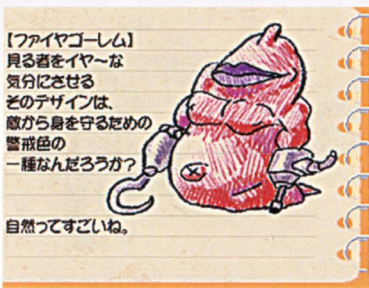 【ファイヤゴーレム】
見る者をイヤ〜な
気分にさせる
そのデザインは、
敵から身を守るための
警戒色の
一種なんだろうか?
自然ってすごいね。